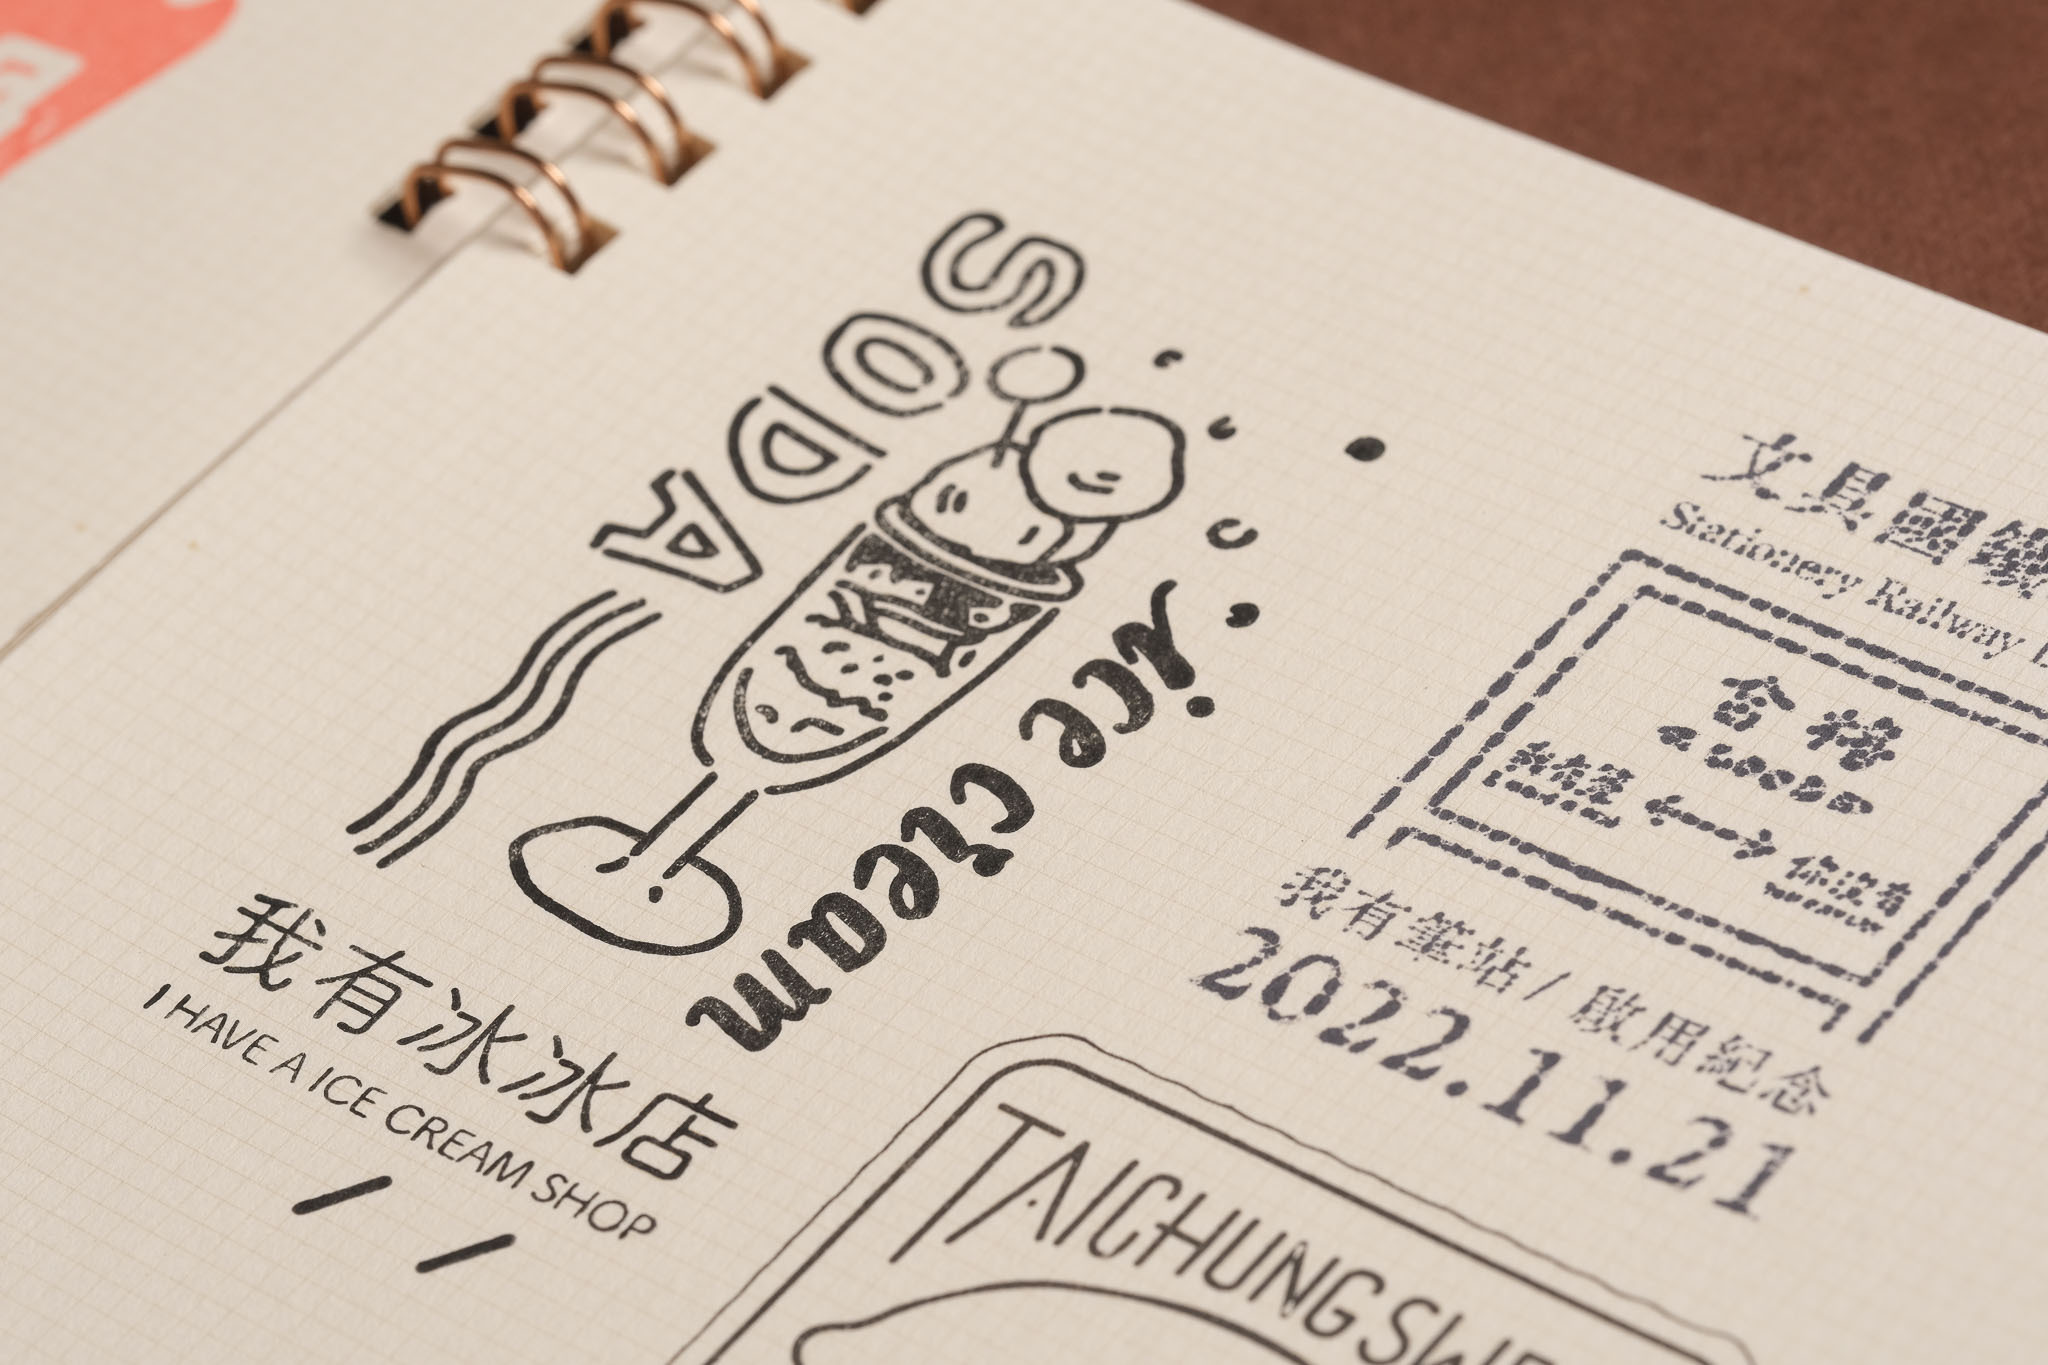 SODA
ice cream
我有冰冰店
I HAVE A ICE CREAM SHOP
文具國鐵
Stationery Railway
合格
a good
我有筆
你沒有
我有筆站/啟用紀念
2022.11.21
TAICHUNG